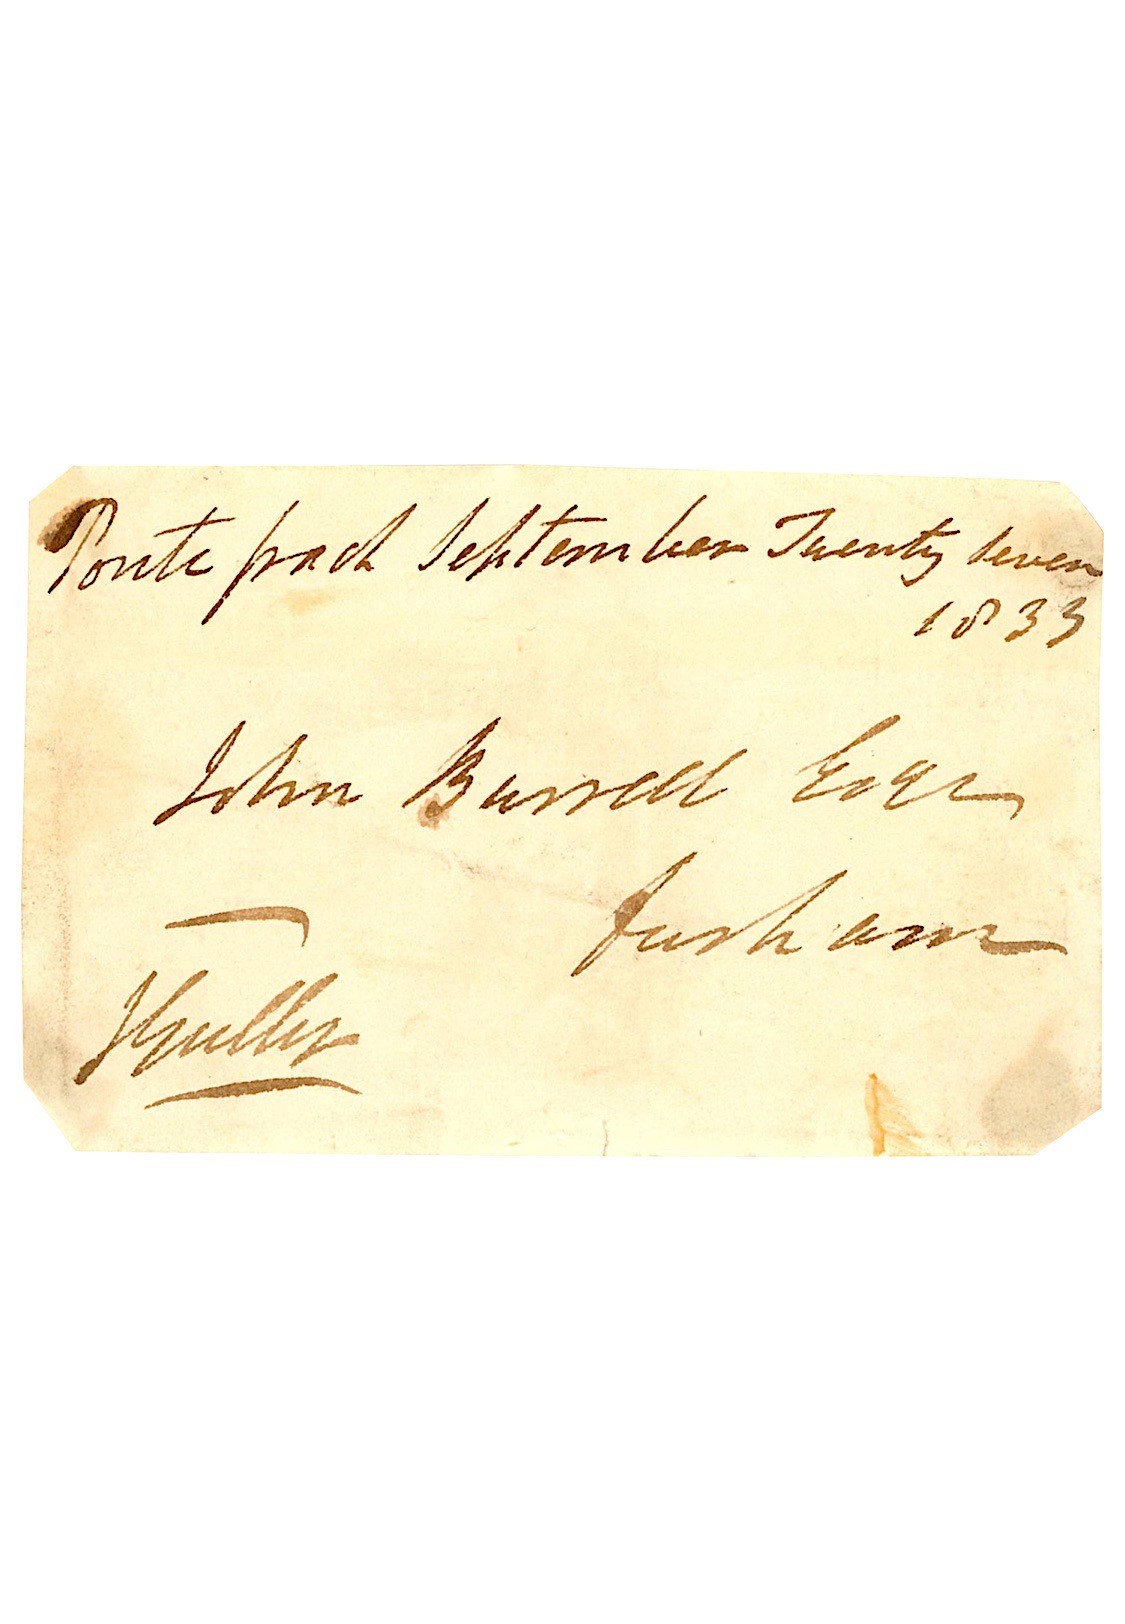 Pontefract September Twenty seven
1833
John Burrell Esqr
Durham
J Gully